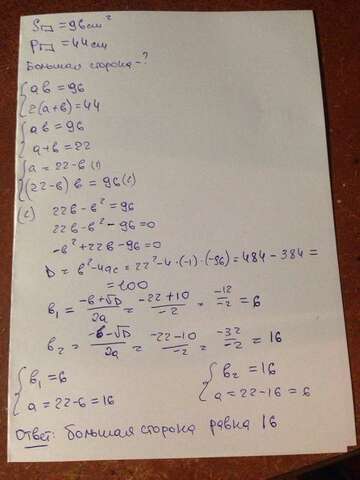 S▭ = 96 см²
P▭ = 44 см
Большая сторона - ?
{ ав = 96
{ 2(а+в) = 44
{ ав = 96
{ а+в = 22
{ а = 22-в (1)
{ (22-в) в = 96 (2)
(2) 22в - в² = 96
22в - в² - 96 = 0
-в² + 22в - 96 = 0
D = в² - 4ac = 22² - 4·(-1)·(-96) = 484 - 384 =
= 100
в₁ = (-в+√D)/2a = (-22+10)/-2 = -12/-2 = 6
в₂ = (-в-√D)/2a = (-22-10)/-2 = -32/-2 = 16
{ в₁ = 6
{ а = 22-6 = 16
{ в₂ = 16
{ а = 22-16 = 6
Ответ: большая сторона равна 16